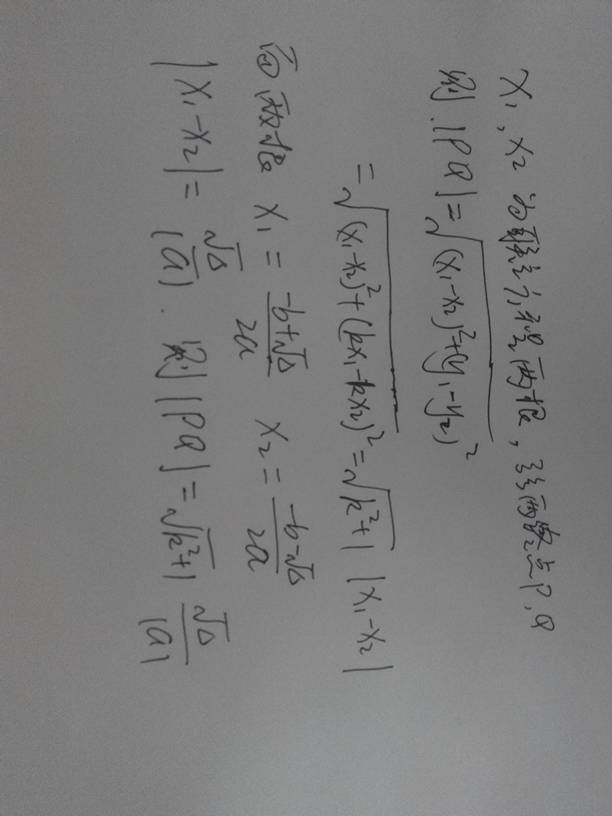 x₁, x₂ 为联立方程两根, 两交点P, Q
则 |PQ| = √((x₁-x₂)²+(y₁-y₂)²
= √((x₁-x₂)²+(kx₁-kx₂)²) = √(k²+1) |x₁-x₂|
而两根 x₁ = (-b+√Δ)/2a x₂ = (-b-√Δ)/2a
|x₁-x₂| = √Δ/|a| . 则 |PQ| = √(k²+1) √Δ/|a|